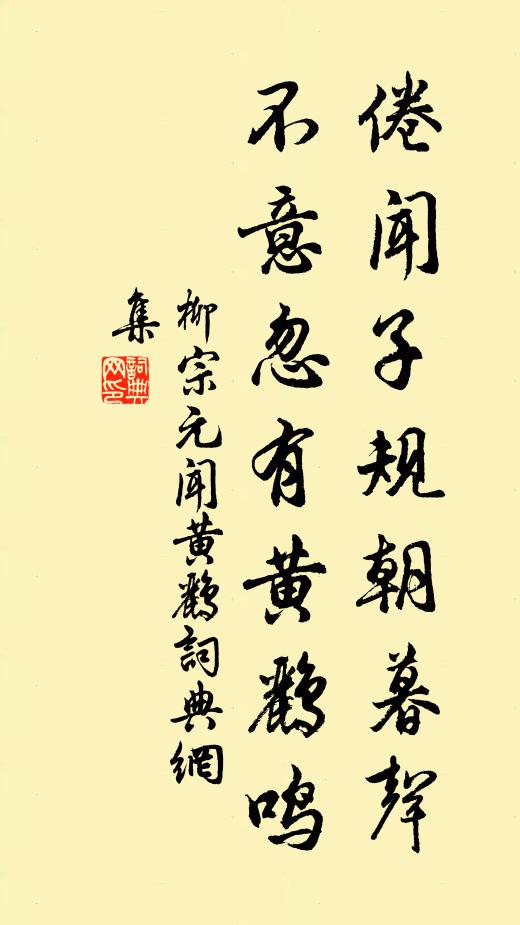 倦闻子规朝暮聲
不意忽有黄鹂鸣
柳宗元闻黄鹂詞典網
集
詞典网印